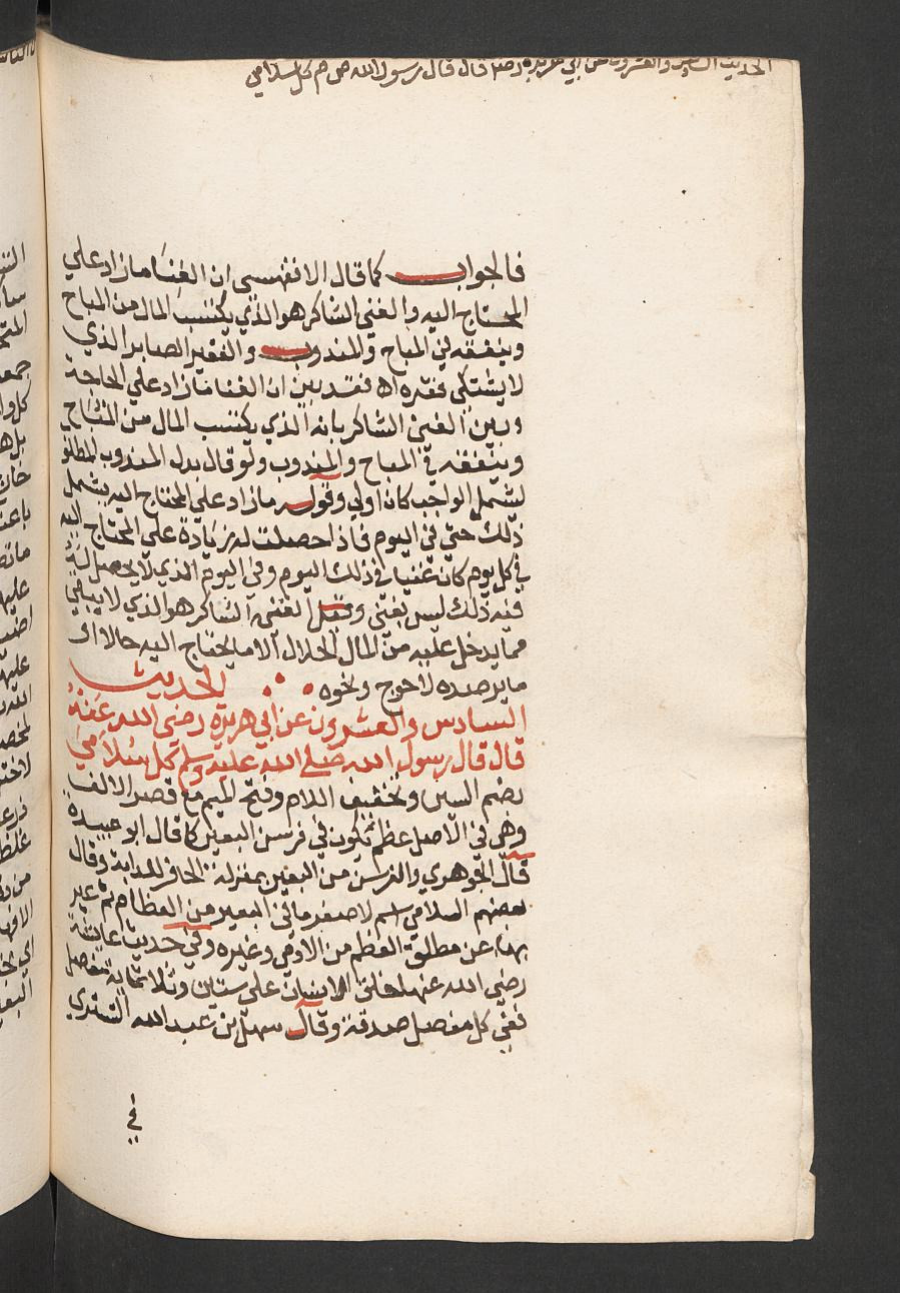 الحديث السادس والعشرون عن ابي هريرة رضه قال قال رسول الله ص م كل سلامي
فالجواب كما قال الاقفهسى ان الغِنَا ما زاد علي
المحتاج اليه والغني الشاكر هو الذي يكتسب المال من المباح
وينفقه في المباح والمندوب والفقير الصابر الذي
لا يشتكي فقره اه فقد بين ان الغنا ما زاد علي الحاجة
وبين الغني الشاكر بانه الذي يكتسب المال من المباح
وينفقه في المباح والمندوب ولو قال بدل المندوب المطلو
لشمل الواجب كان اولي وقوله ما زاد علي المحتاج اليه يشمل
ذلك حتي في اليوم فاذا حصلت له زيادة علي المحتاج اليه
في كل يوم كان غنيا في ذلك اليوم وفى اليوم الذي لا يحصل له
فيه ذلك ليس بغنى ونقل الغني الشاكر هو الذي لا يبقي
مما يدخل عليه من المال الحلال الا ما يحتاج اليه حالا او
ما يرصده لاحوج ونحوه الحديث
السادس والعشرون عن ابي هريرة رضى الله عنه
قال قال رسول الله صلى الله عليه وسلم كل سُلَامَى
بضم السين وتخفيف اللام وفتح الميم مع قصر الالف
وهي في الاصل عظم يكون في فرسن البعير كما قال ابو عبيدة
قال الجوهري والفرسن من البعير بمنزلة الحافر للدابة وقال
بعضهم السلامي اسم لاصغر ما في البعير من العظام ثم عبر
بها عن مطلق العظم من الادمي وغيره وفي حديث عايشة
رضي الله عنها خلق الانسان علي ستين وثلاثماية مفصل
ففي كل مفصل صدقة وقال سهل بن عبد الله التستري
في